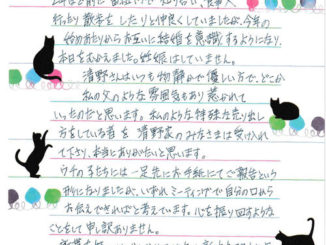 行ったり散歩をしたりと仲良くしていましたが、今年の
始めあたりからお互いに結婚を意識するようになり、
本日をむかえました。妊娠はしていません。
清野さんはいつも物静かで優しい方で、どこか
私の父のような雰囲気もあり惹かれて
いったのだと思います。私のような特殊な生い出し
方をしている者を 清野家のみなさまは受け入れ
て下さり、本当にありがたいと思います。
ウチの子たちには一足先にお手紙にてご報告という
形になりましたが、いずれミーティングで自分の口から
お伝えできればと考えています。心を掘り回すような
ことをして申し訳ありません。